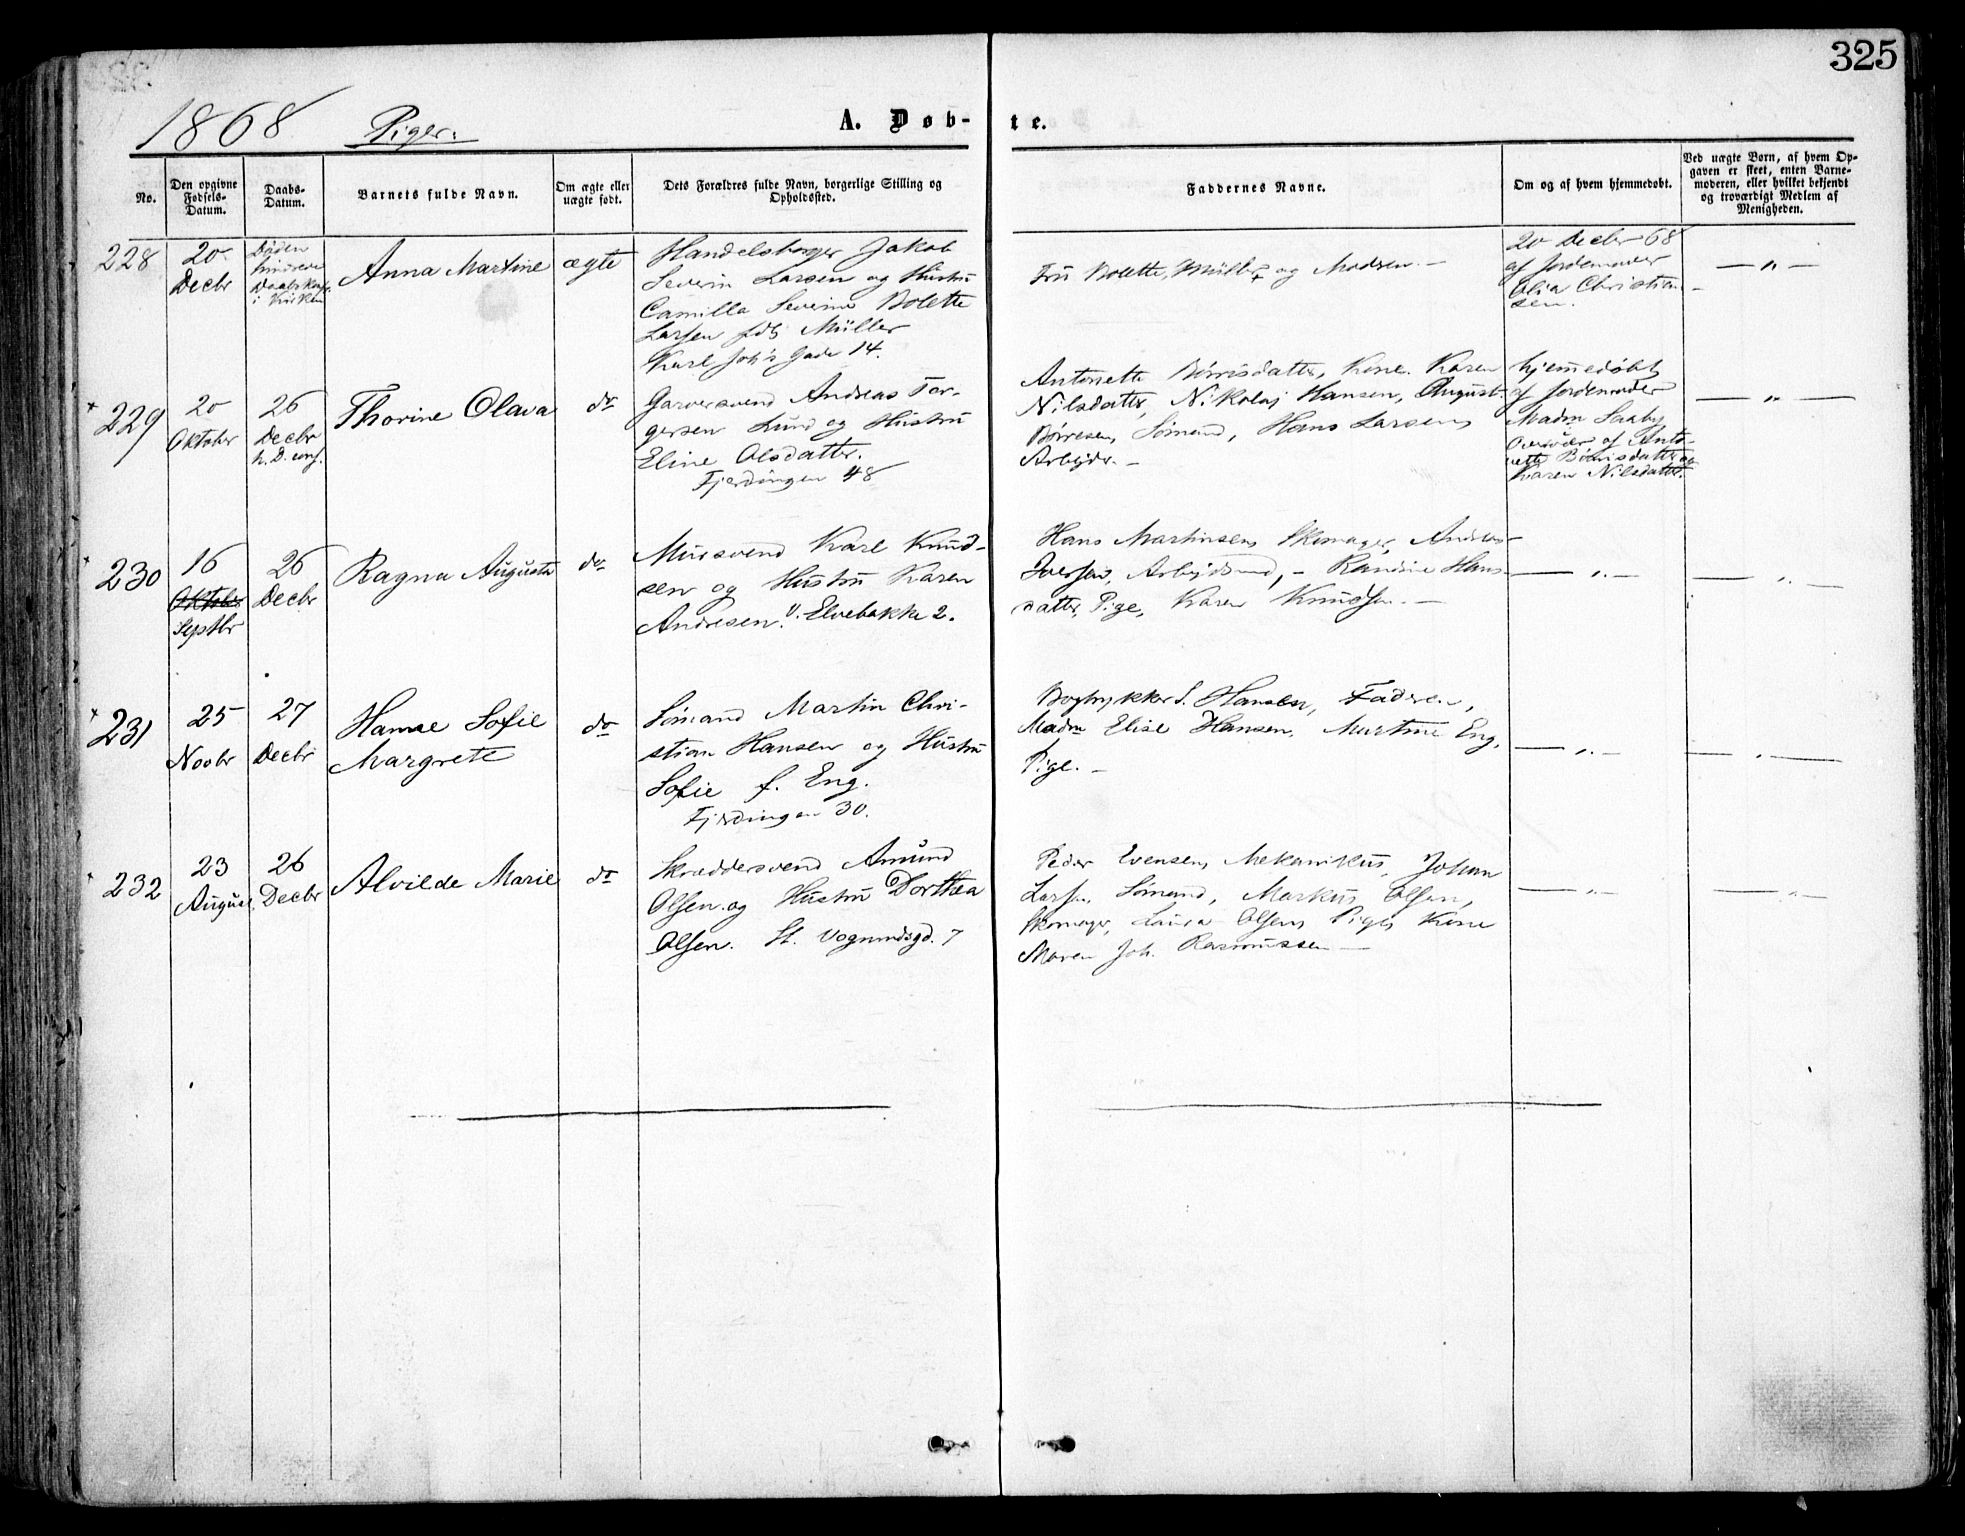 325
1868 Piger.
A. Døb-
te.
No.
Den opgivne Fødsels-Datum.
Daabs-Datum.
Barnets fulde Navn.
Om ægte eller uægte født.
Dets Forældres fulde Navn, borgerlige Stilling og Opholdssted.
Faddernes Navne.
Om og af hvem hjemmedøbt.
Ved uægte Børn, af hvem Op-
gaven er skeet, enten Barne-
moderen, eller hvilket bekjendt
og troværdigt Medlem af
Menigheden.
228
20
Decbr
Døden
hindrede
i Kirken
Anna Martine
ægte
Handelsborger Jakob
Severin Larsen og Hustru
Camilla Severine Bolette
Larsen fdt Müller
Karl Joh's Gade 14.
Fru Bolette Müller og Madsen. —
20 Decbr 68
af Jordemoder
Olia Christian-
sen.
— " —
229
20
Oktober
26
Decbr
h. D. conf.
Thorine Olava
do
Garversvend Andreas Tor-
gersen Lund og Hustru
Eline Olsdatter.
Fjerdingen 48
Antonette Børrisdatter, Kone. Karen
Nilsdatter, Nikolaj Hansen, August
Børresen, Sømænd, Hans Larsen,
Arbejder. —
hjemmedøbt
af Jordemoder
Madm Saaby
Overvær af Anto-
nette Børrisdatter og
Karen Nilsdatter.
— " —
230
16
Oktober
Septbr
26
Decbr
Ragna Augusta
do
Mursvend Karl Knud-
sen og Hustru Karen
Andresen. V. Elvebakke 2.
Hans Martinsen, Skomager, Andreas
Iversen, Arbejdsmd, — Randine Hans-
datter, Pige, Karen Knudsen. —
— " —
— " —
231
25
Novbr
27
Decbr
Hanne Sofie
Margrete
do
Sømand Martin Chri-
stian Hansen og Hustru
Sofie f. Eng.
Fjerdingen 30.
Bogtrykker S. Hansen, Faderen,
Madm Elise Hansen, Martine Eng,
Pige. —
— " —
— " —
232
23
August
26
Decbr
Alvilde Marie
do
Skræddersvend Amund
Olsen og Hustru Dorthea
Olsen. St. Vognmdsgd. 7
Peder Evensen, Mekanikus, Johan
Larsen, Sømand, Markus Olsen,
Skomager, Laura Olsen, Pige, Kone
Maren Joh. Rasmussen —
— " —
— " —